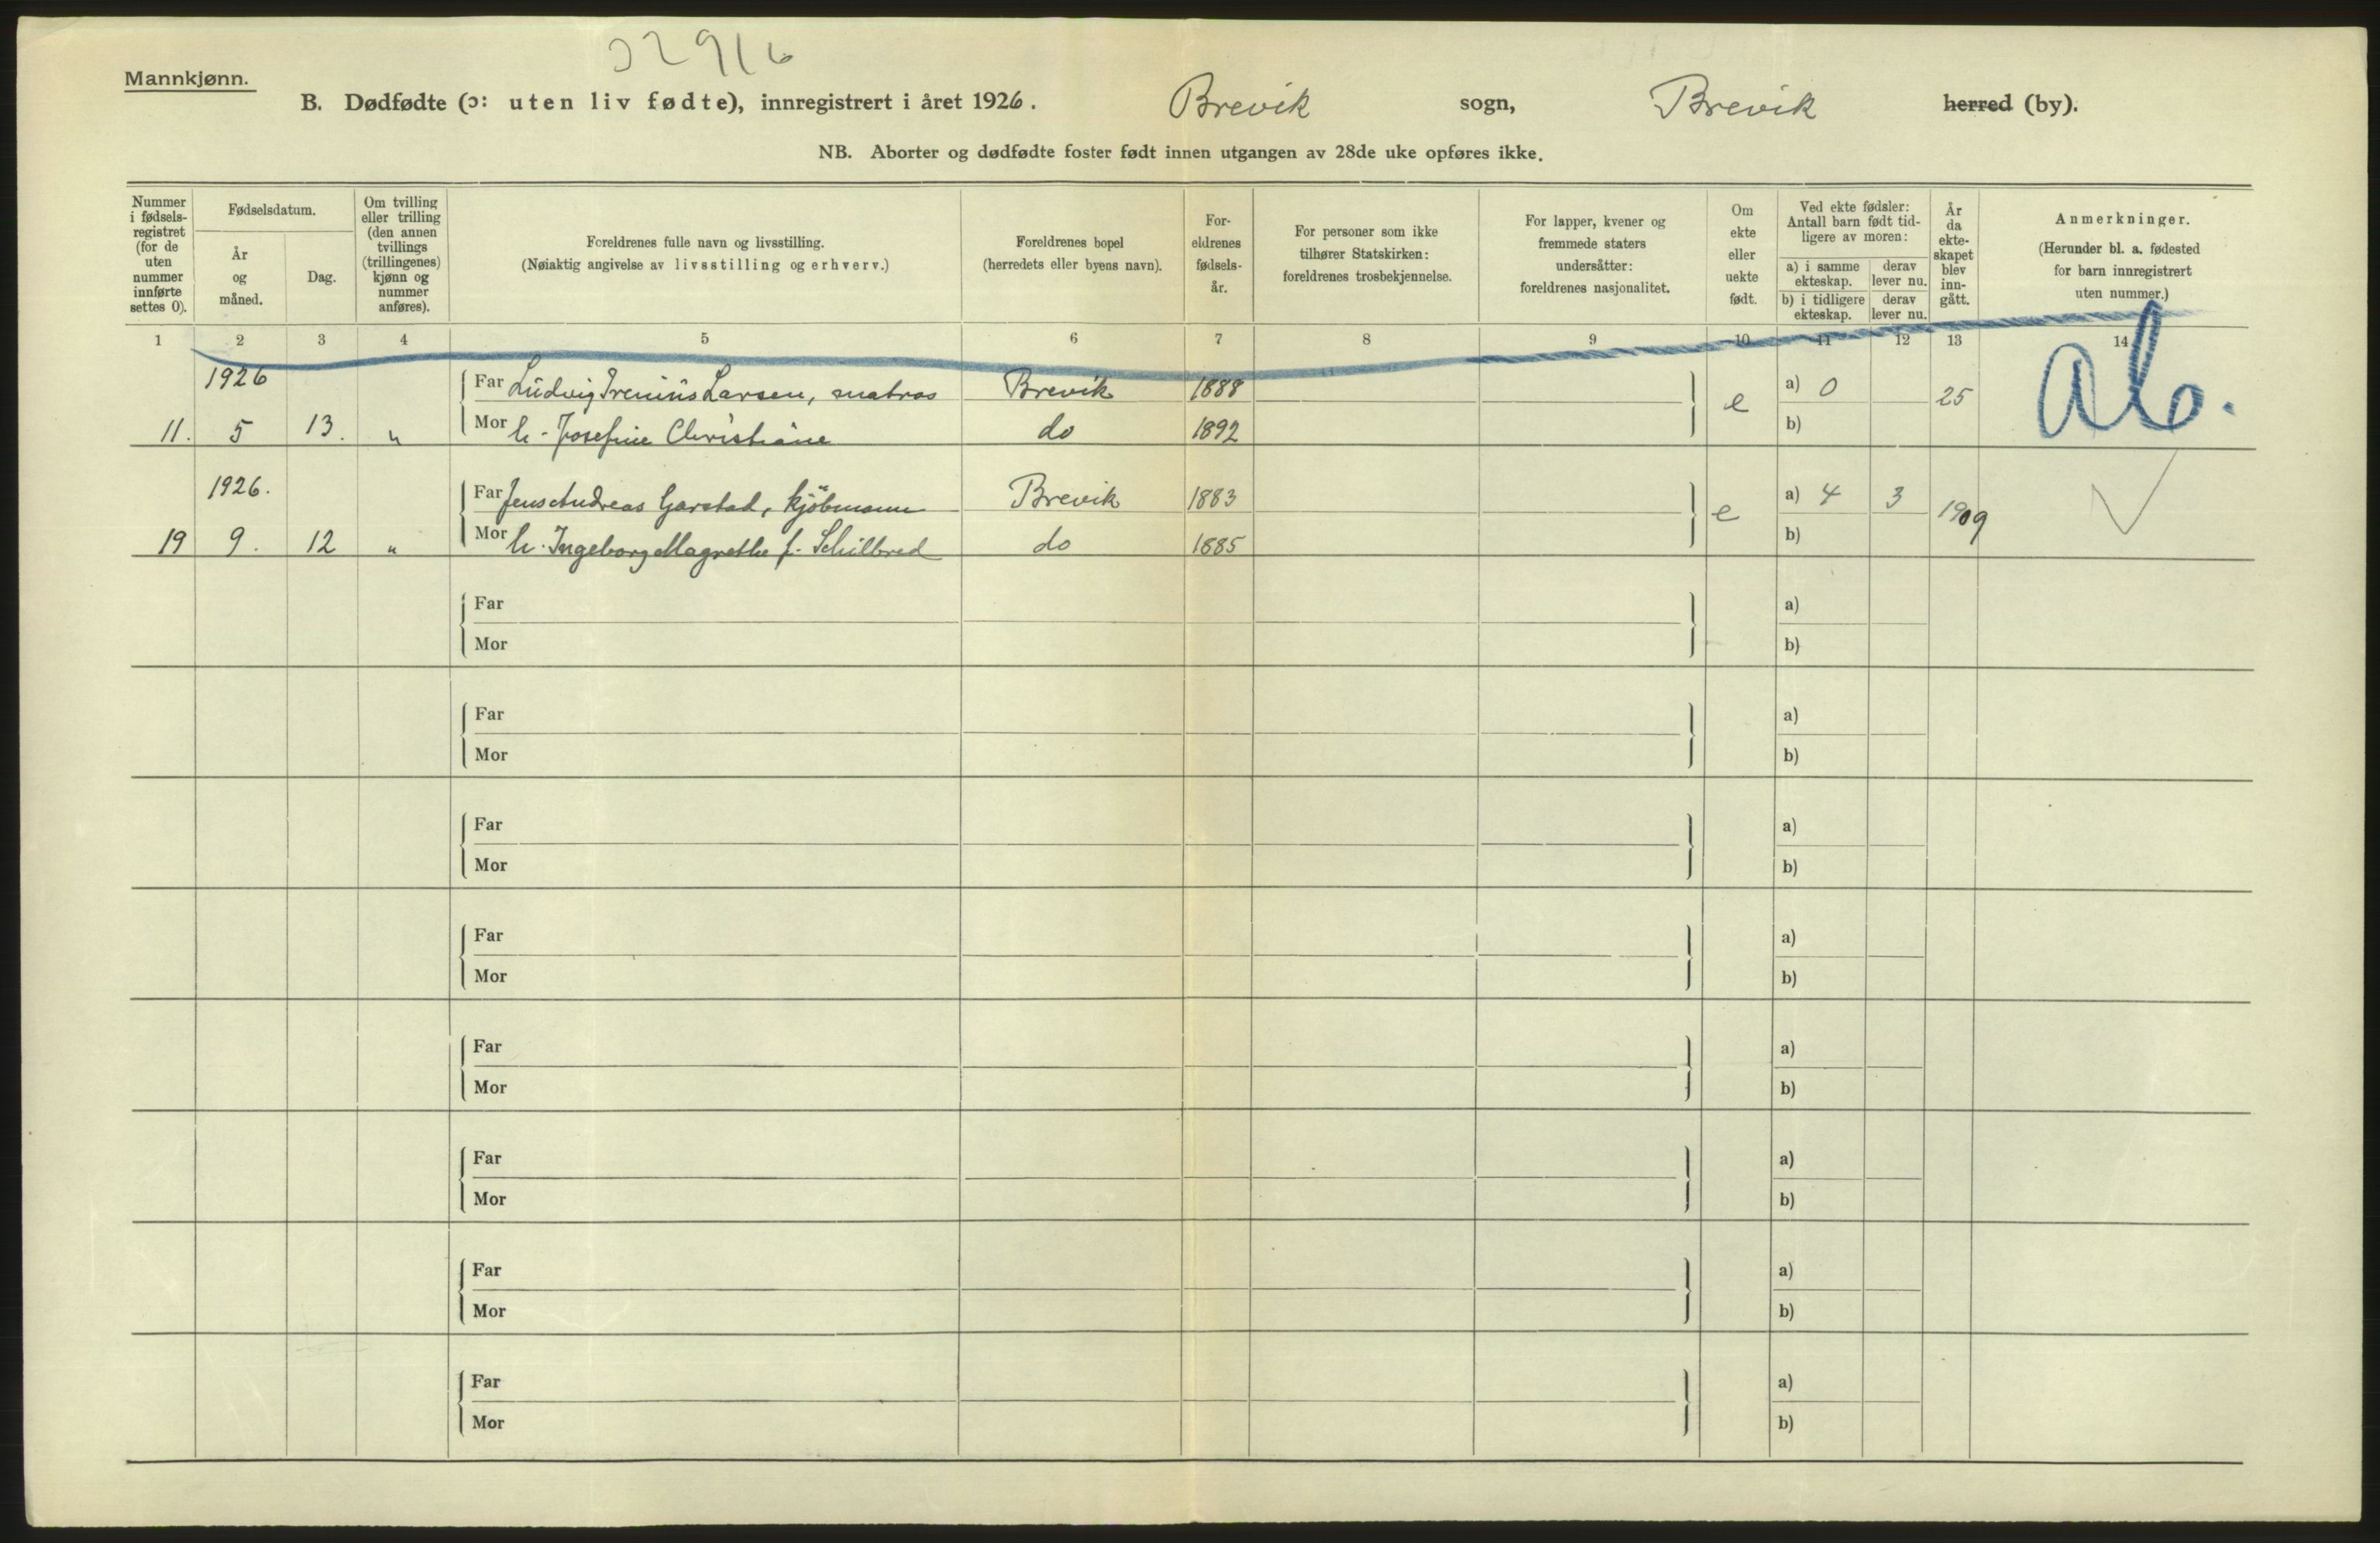 32916
Mannkjønn.
B. Dødfødte (ɔ: uten liv fødte), innregistrert i året 1926. Brevik sogn, Brevik herred (by).
NB. Aborter og dødfødte foster født innen utgangen av 28de uke opføres ikke.
Nummer i fødsels-
registret
(for de
uten
nummer
innførte
settes 0).
Fødselsdatum.
År
og
måned.
Dag.
Om tvilling
eller trilling
(den annen
tvillings
(trillingenes)
kjønn og
nummer
anføres).
Foreldrenes fulle navn og livsstilling.
(Nøiaktig angivelse av livsstilling og erhverv.)
Foreldrenes bopel
(herredets eller byens navn).
For-
eldrenes
fødsels-
år.
For personer som ikke
tilhører Statskirken:
foreldrenes trosbekjennelse.
For lapper, kvener og
fremmede staters
undersåtter:
foreldrenes nasjonalitet.
Om
ekte
eller
uekte
født.
Ved ekte fødsler:
Antall barn født tid-
ligere av moren:
a) i samme
ekteskap.
derav
lever nu.
b) i tidligere
ekteskap.
derav
lever nu.
År
da
ekte-
skapet
blev
inn-
gått.
Anmerkninger.
(Herunder bl. a. fødested
for barn innregistrert
uten nummer.)
1 2 3 4 5 6 7 8 9 10 11 12 13 14
1926 Far Ludvig Irenius Larsen, matros Brevik 1888 e a) 0 25 Ab.
11. 5 13. " Mor h. Josefine Christiane do 1892 b)
1926. Far Jens Andreas Garstad, kjöbmann Brevik 1883 e a) 4 3 1909
19 9. 12 " Mor h. Ingeborg Magrethe f. Schilbred do 1885 b)
Far a)
Mor b)
Far a)
Mor b)
Far a)
Mor b)
Far a)
Mor b)
Far a)
Mor b)
Far a)
Mor b)
Far a)
Mor b)
Far a)
Mor b)